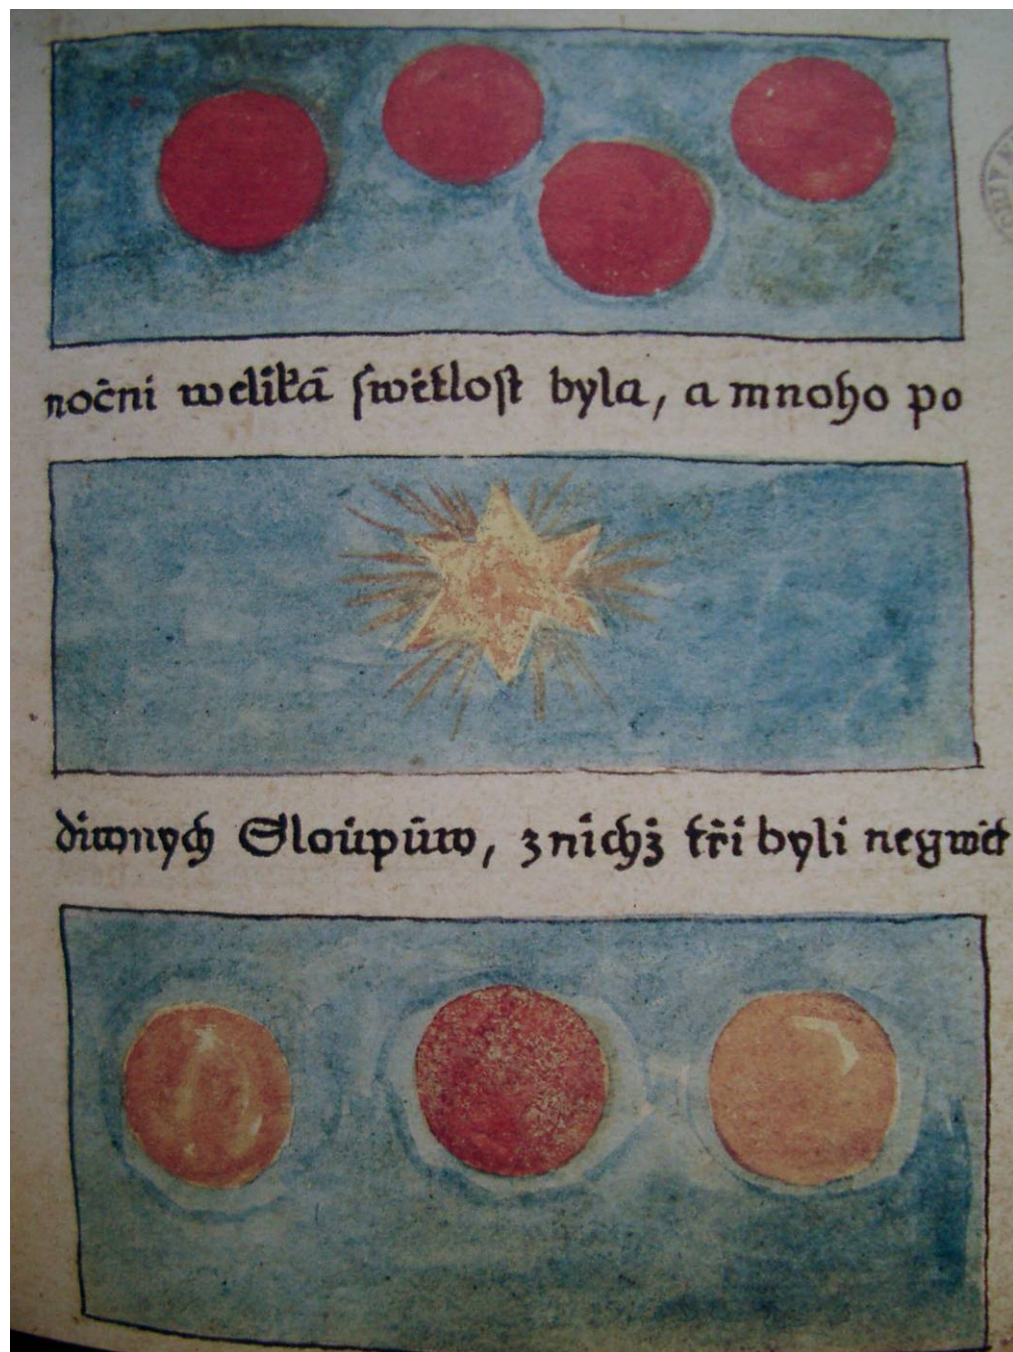 noční weliká swětlost byla, a mnoho po
diwných Sloupůw, z nichž tři byli neywět